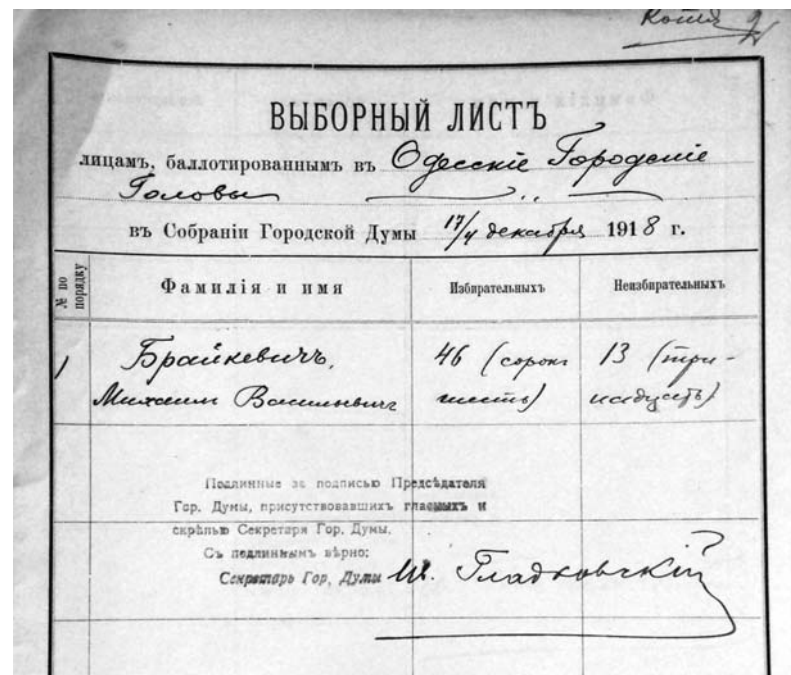 Копія
ВЫБОРНЫЙ ЛИСТЪ
лицамъ, баллотированнымъ въ Одесскіе Городскіе
Головы
въ Собраніи Городской Думы 17/4 декабря 1918 г.
№ по порядку Фамилія и имя Избирательныхъ Неизбирательныхъ
1 Брайкевичъ, 46 (сорокъ 13 (три-
Михаилъ Васильевичъ шесть) надцать)
Подлинные за подписью Предсѣдателя
Гор. Думы, присутствовавшихъ гласныхъ и
скрѣпью Секретаря Гор. Думы.
Съ подлиннымъ вѣрно:
Секретарь Гор. Думы Гладковскій